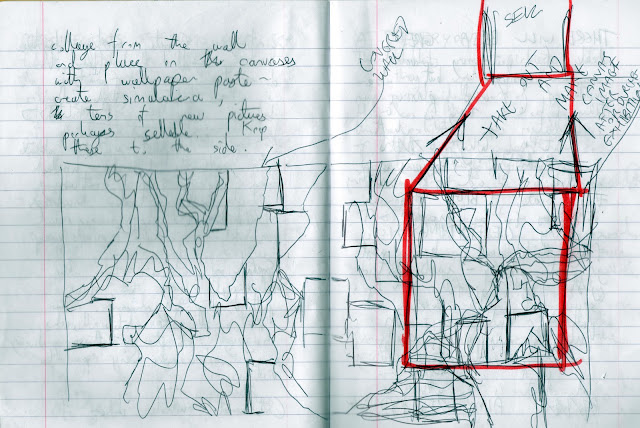 collage from the wall
and place in canvases
with wallpaper paste –
create simulacra,
tens of new pictures
perhaps sellable. Keep
these to the side.
COVERED
WALL
SELL
TAKE OUT AND MAKE
CANVAS
AFTERIMAGE
OF